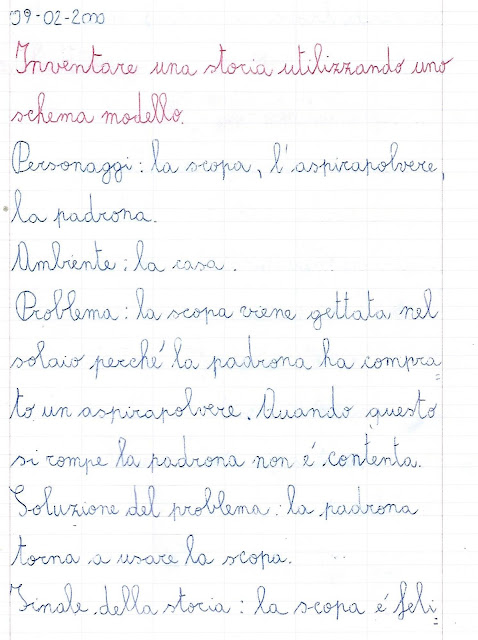 09-02-2000
Inventare una storia utilizzando uno
schema modello.
Personaggi: la scopa, l'aspirapolvere,
la padrona.
Ambiente: la casa.
Problema: la scopa viene gettata nel
solaio perché la padrona ha compra
to un aspirapolvere. Quando questo
si rompe la padrona non é contenta.
Soluzione del problema: la padrona
torna a usare la scopa.
Finale della storia: la scopa é feli